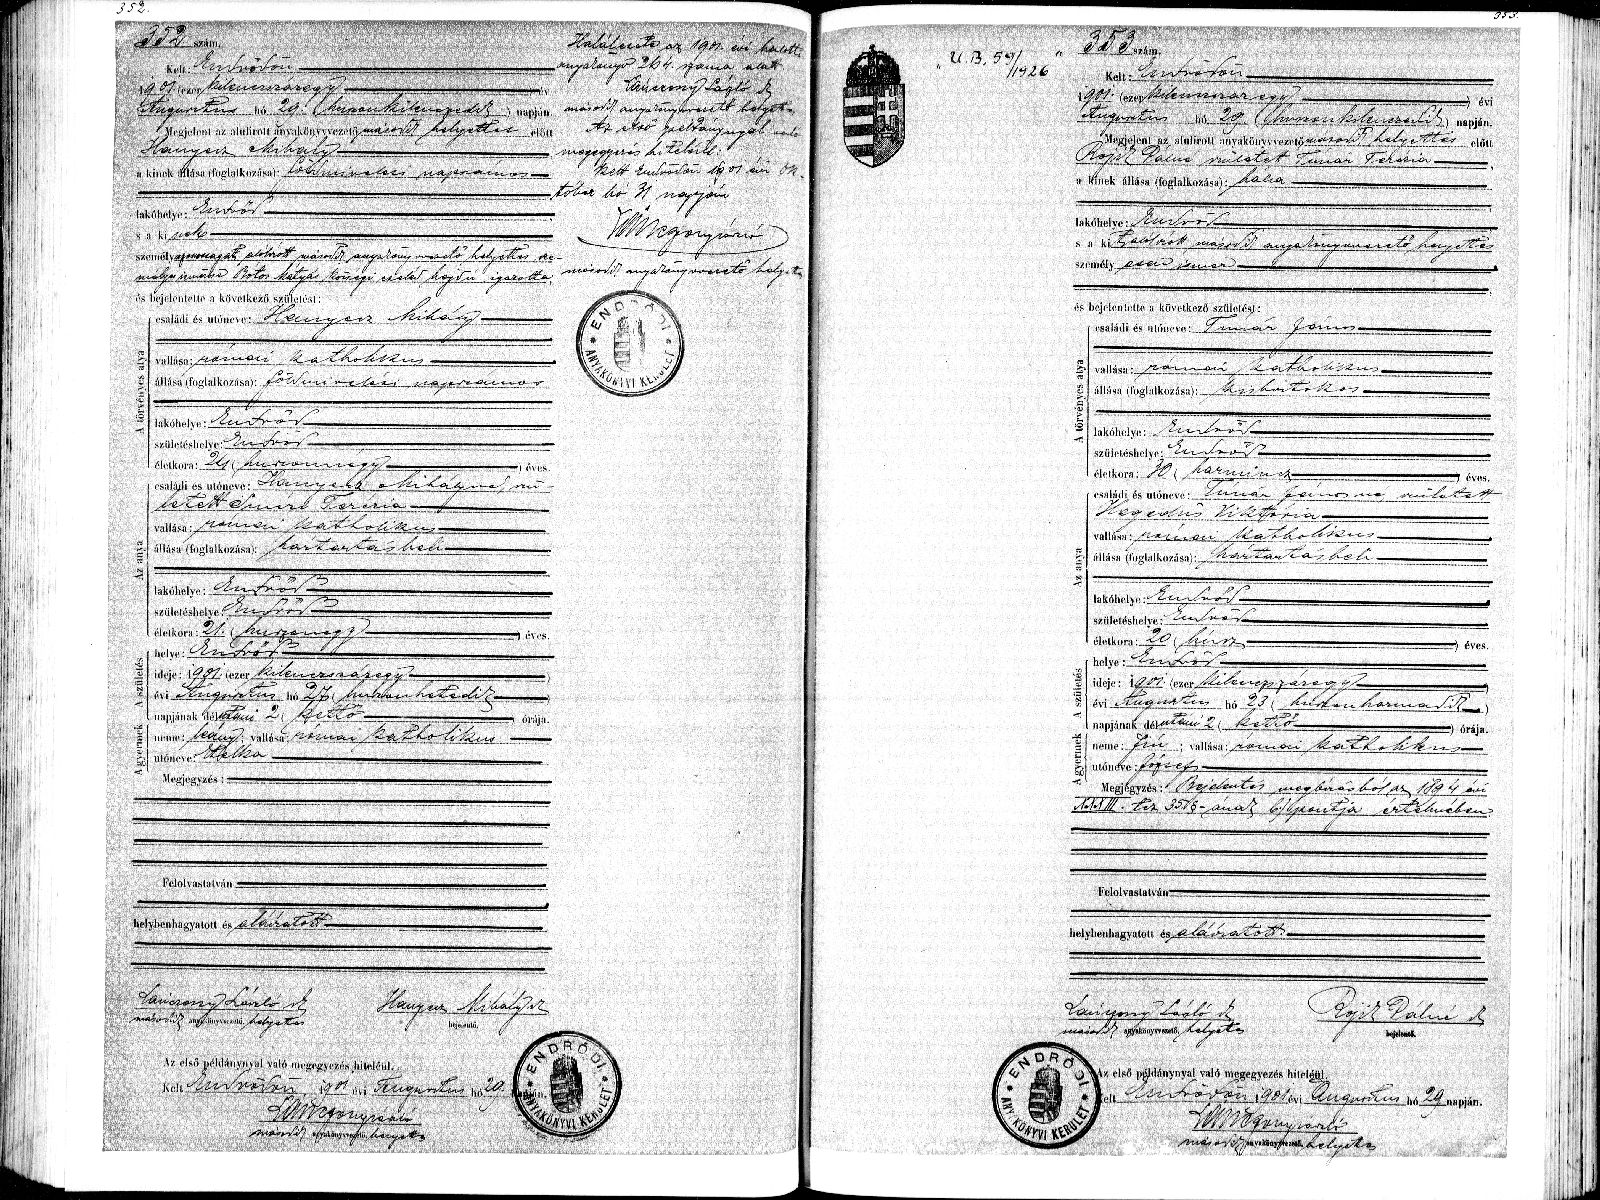 352.
352 szám.
Kelt: Endrődön
1901 (ezer kilenczszázegy) év
Augusztus hó 29. (huszonkilenczedik) napján
Megjelent az alulirott anyakönyvvezető második helyettes előtt
Hanyecz Mihály
a kinek állása (foglalkozása): földmivelési napszámos
lakóhelye: Endrőd
s a ki nek
személyazonosságát alólirott második anyakönyvvezető helyettes
és bejelentette a következő születést:
A törvényes atya
családi és utóneve: Hanyecz Mihály
vallása: római katholikus
állása (foglalkozása): földmivelési napszámos
lakóhelye: Endrőd
születéshelye: Endrőd
életkora: 24 (huszonnégy) éves.
Az anya
családi és utóneve: Hanyecz Mihályné, szü-
letett Terézia
vallása: római katholikus
állása (foglalkozása): háztartásbeli
lakóhelye: Endrőd
születéshelye: Endrőd
életkora: 21. (huszonegy) éves.
A születés
helye: Endrőd
ideje: 1901 (ezer kilenczszázegy)
évi Augusztus hó 27 (huszonhetedik)
napjának délutáni 2 (kettő) órája.
A gyermek
neme: leány; vallása: római katholikus
utóneve: Etelka
Megjegyzés:
Felolvastatván
helybenhagyatott és aláiratott
Lánczony László sk Hanyecz Mihály sk
második anyakönyvvezető, helyettes bejelentő.
Az első példánynyal való megegyezés hiteléül.
Kelt Endrődön 1901 évi Augusztus hó 29. napján.
második anyakönyvvezető helyettes
ENDRŐDI
ANYAKÖNYVI KERÜLET
Haláleset az 1901. évi halotti
anyakönyv 264. száma alatt
Lánczony László sk
második anyakönyvvezető helyettes
Az első példánynyal való
megegyezés hiteléül.
Kelt Endrődön 1901 évi Ok-
tóber hó 31 napján
második anyakönyvvezető helyettes
ENDRŐDI
ANYAKÖNYVI KERÜLET
353.
"U. B. 59/1926"
353 szám.
Kelt: Endrődön
1901. (ezer kilenczszáz egy) évi
Augusztus hó 29 (huszonkilenczedik) napján.
Megjelent az alulirott anyakönyvvezető második helyettes előtt
Pálné született Timár Terézia
a kinek állása (foglalkozása): bába
lakóhelye: Endrőd
s a kit alólirott második anyakönyvvezető helyettes
személyesen ismer
és bejelentette a következő születést:
A törvényes atya
családi és utóneve: Timár János
vallása: római katholikus
állása (foglalkozása): kisbirtokos
lakóhelye: Endrőd
születéshelye: Endrőd
életkora: 30 (harmincz) éves.
Az anya
családi és utóneve: Timár Jánosné született
Hegedűs Viktória
vallása: római katholikus
állása (foglalkozása): háztartásbeli
lakóhelye: Endrőd
születéshelye: Endrőd
életkora: 20 (húsz) éves.
A születés
helye: Endrőd
ideje: 1901 (ezer kilenczszázegy)
évi Augusztus hó 23 (huszonharmadik)
napjának délutáni 2 (kettő) órája.
A gyermek
neme: fiú; vallása: római katholikus
utóneve: József
Megjegyzés: Bejelentés megbizásból az 1894 évi
XXXIII. tcz 35 §-ának b) pontja értelmében
Felolvastatván
helybenhagyatott és aláiratott
Lánczony László sk Pálné sk
második anyakönyvvezető, helyettes bejelentő.
Az első példánynyal való megegyezés hiteléül.
Kelt Endrődön 1901 évi Augusztus hó 29 napján.
második anyakönyvvezető, helyettes
ENDRŐDI
ANYAKÖNYVI KERÜLET